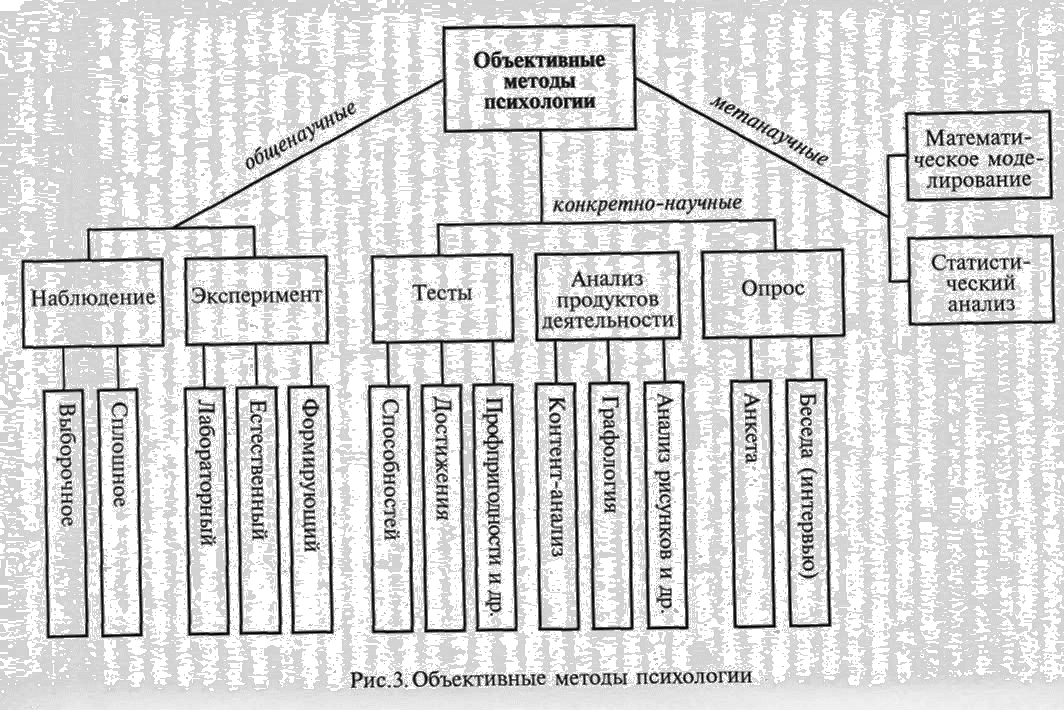 Объективные
методы
психологии
общенаучные
метанаучные
конкретно-научные
Математи-
ческое моде-
лирование
Статисти-
ческий
анализ
Наблюдение
Эксперимент
Тесты
Анализ
продуктов
деятельности
Опрос
Выборочное
Сплошное
Лабораторный
Естественный
Формирующий
Способностей
Достижения
Профпригодности и др.
Контент-анализ
Графология
Анализ рисунков и др.
Анкета
Беседа (интервью)
Рис.3. Объективные методы психологии